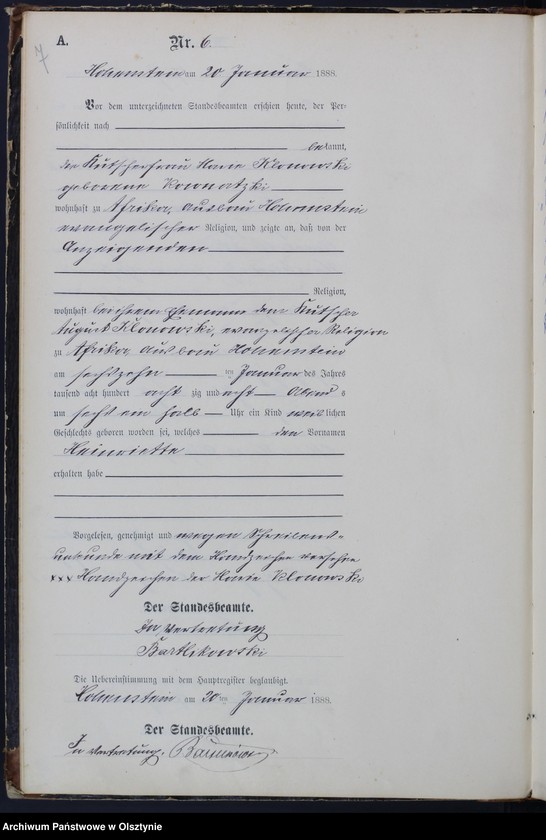 7
A.
Nr. 6.
Hohenstein am 20 Januar 1888.
Vor dem unterzeichneten Standesbeamten erschien heute, der Per-
sönlichkeit nach
bekannt,
die Kutscherfrau Marie Klonowski
geborene Kownatzki
wohnhaft zu Afrika, Ausbau Hohenstein
evangelischer Religion, und zeigte an, daß von der
Anzeigenden
Religion,
wohnhaft bei ihrem Ehemann dem Kutscher
August Klonowski, evangelischer Religion
zu Afrika, Ausbau Hohenstein
am sechszehn ten Januar des Jahres
tausend acht hundert acht zig und acht Abend s
um sechs ein halb Uhr ein Kind weib lichen
Geschlechts geboren worden sei, welches den Vornamen
Henriette
erhalten habe
Vorgelesen, genehmigt und wegen Schreibens-
unkunde mit dem Handzeichen versehen
xxx Handzeichen der Marie Klonowski
Der Standesbeamte.
In Vertretung
Bartlikowski
Die Uebereinstimmung mit dem Hauptregister beglaubigt.
Hohenstein am 20 ten Januar 1888.
Der Standesbeamte.
In Vertretung.
Archiwum Państwowe w Olsztynie